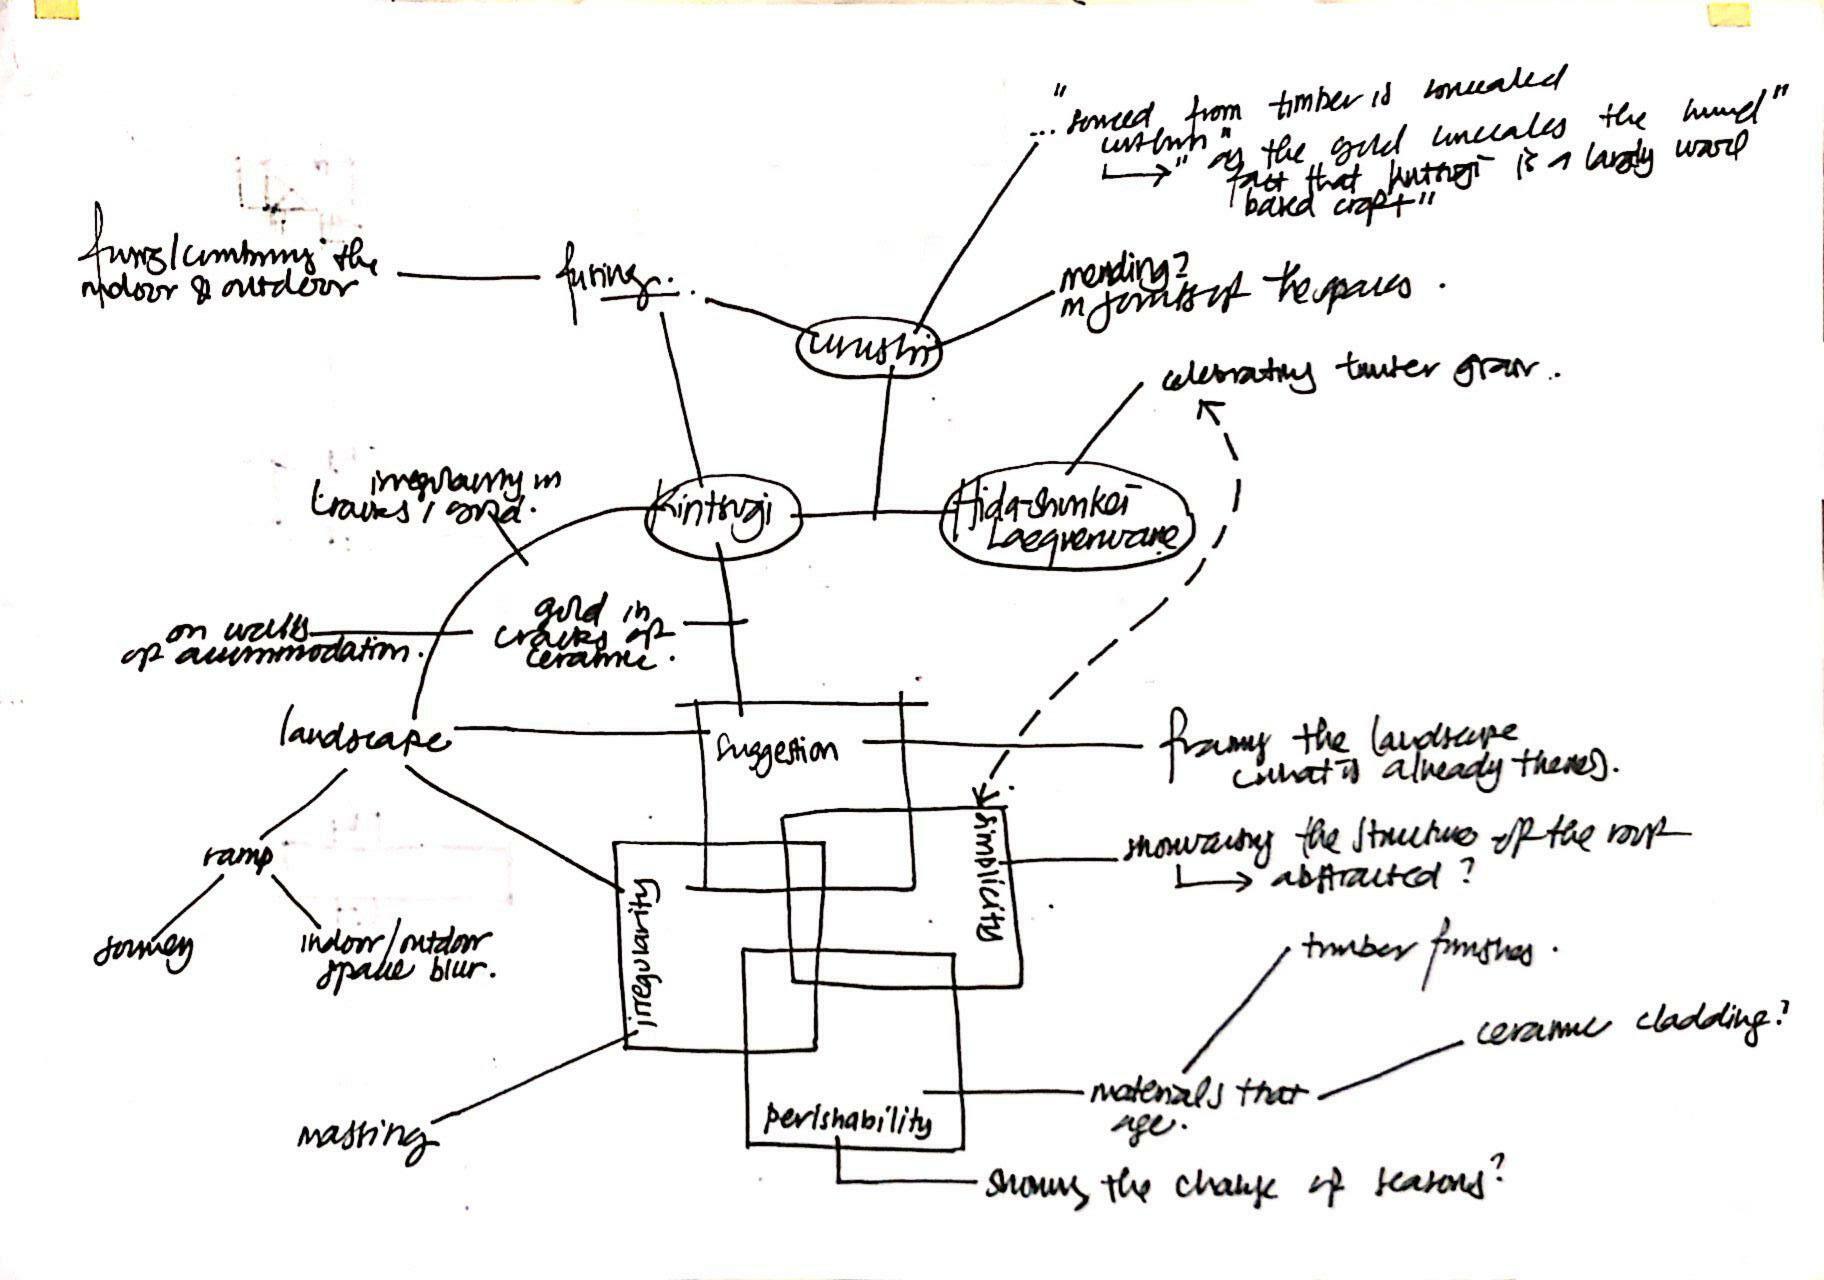 "
... sourced from timber is concealed
within"
" as the gold conceales the
fact that kintsugi is a largly wood
based craft"
fusing/combining the
indoor & outdoor
fusing...
mending?
in forms of the spaces.
urushi
celebrating timber grain.
irregularity in
cracks / gold.
Kintsugi
Hida-Shunkei
Lacquerware
on walls
of accommodation.
gold in
cracks of
ceramic.
landscape
suggestion
framing the landscape
(what is already there).
simplicity
showcasing the structure of the roof
abstracted?
ramp
irregularity
journey
indoor/outdoor
space blur.
timber finishes.
ceramic cladding?
materials that
age.
perishability
massing
showing the change of seasons?